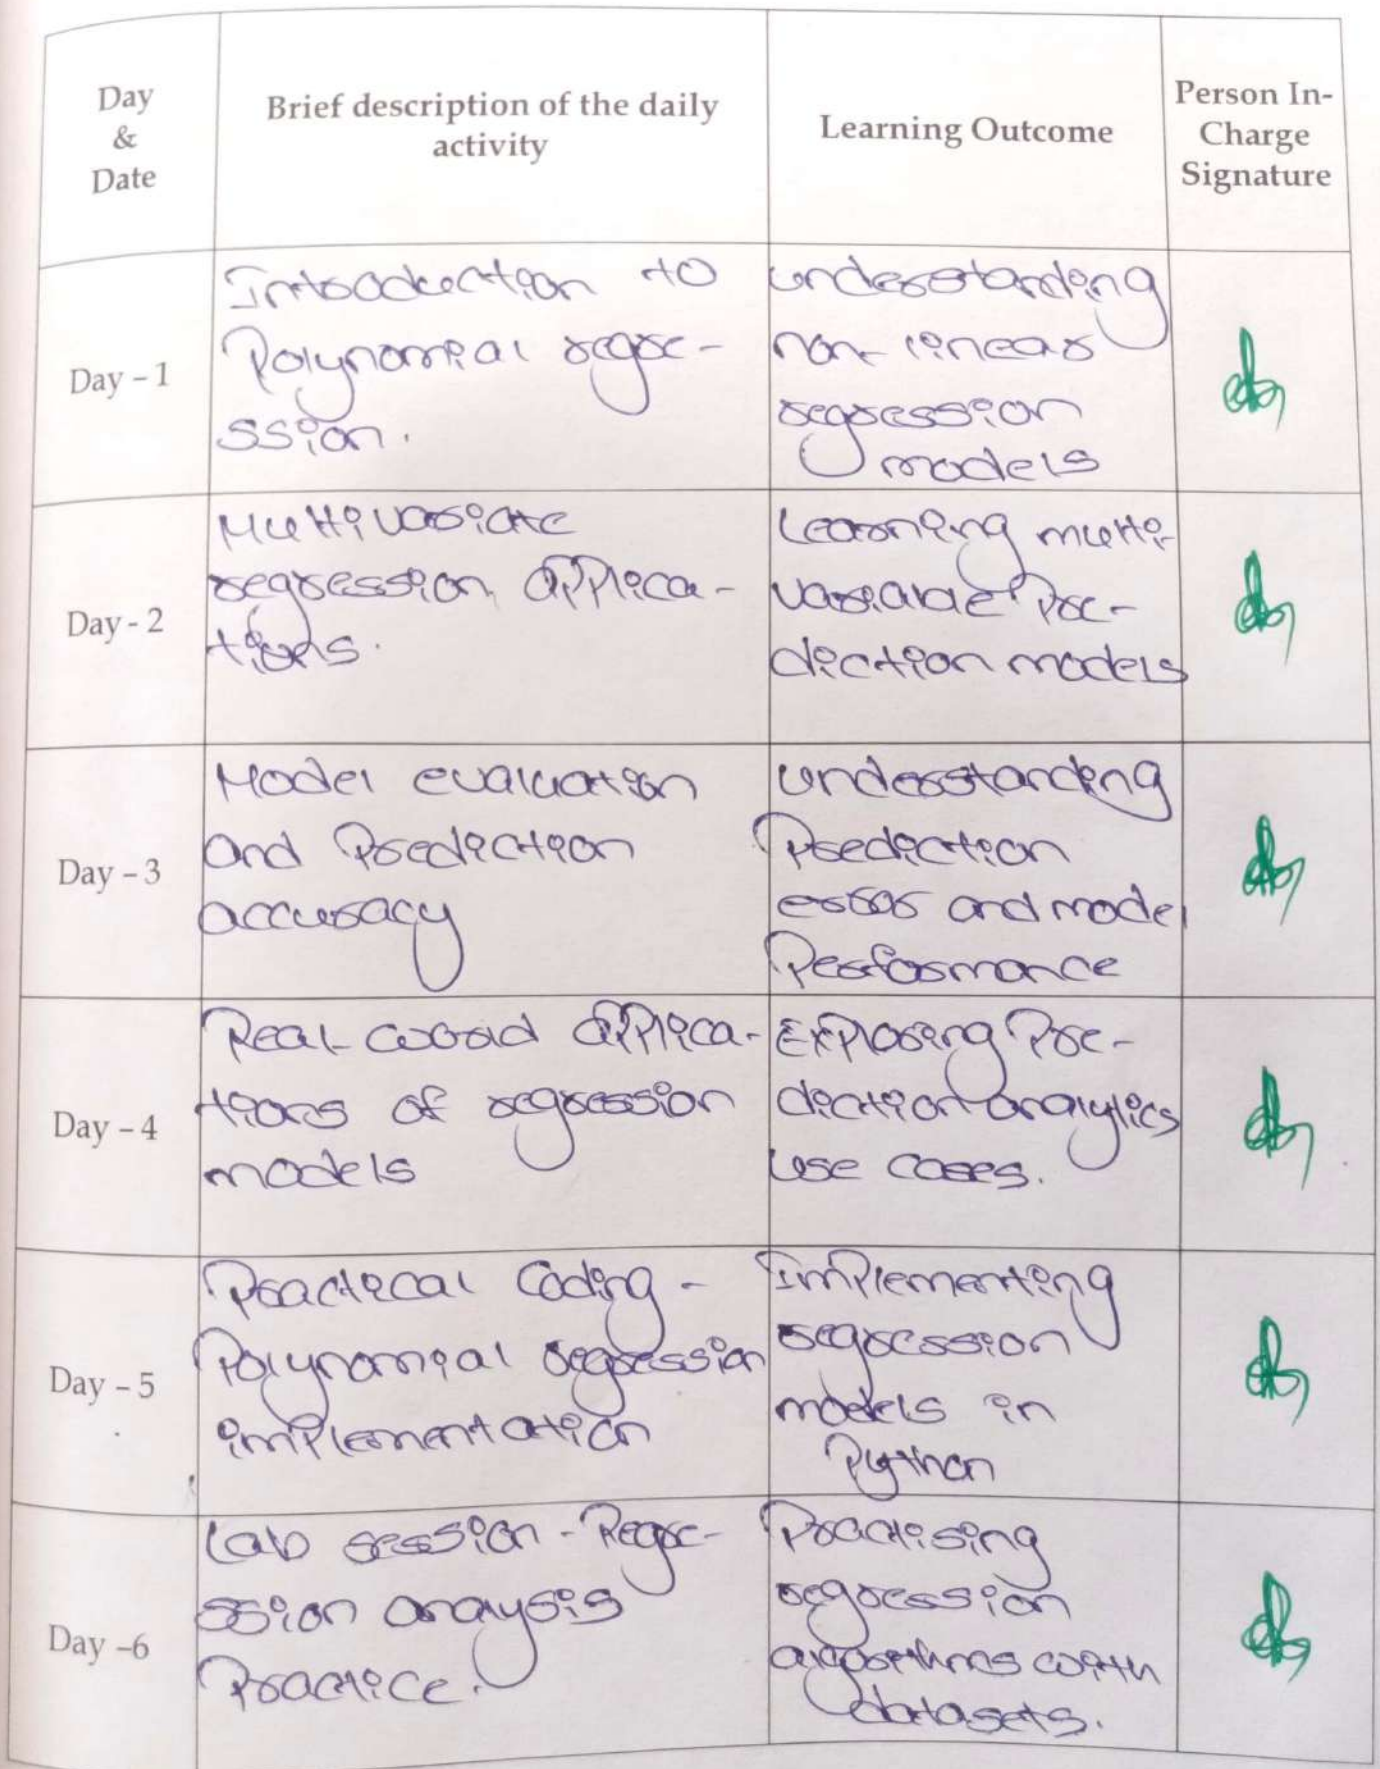 Day & Date
Brief description of the daily activity
Learning Outcome
Person In-Charge Signature
Day – 1
Introduction to
Polynomial regre-
ssion.
understanding
non-linear
regression
models
Day - 2
Multivariate
regression applica-
tions.
Learning multi-
variable Pre-
diction models
Day – 3
Model evaluation
and Prediction
accuracy
understanding
Prediction
error and model
Performance
Day – 4
Real-world applica-
tions of regression
models
Exploring Pre-
diction analytics
use cases.
Day – 5
Practical Coding -
Polynomial regression
implementation
Implementing
regression
models in
Python
Day –6
Lab session - Regre-
ssion analysis
Practice.
Practising
regression
algorithms with
datasets.